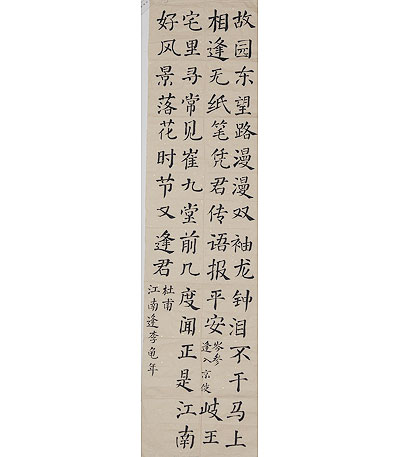 故园东望路漫漫双袖龙钟泪不干马上
相逢无纸笔凭君传语报平安
岑参
逢入京使
岐王
宅里寻常见崔九堂前几度闻正是江南
好风景落花时节又逢君
杜甫
江南逢李龟年